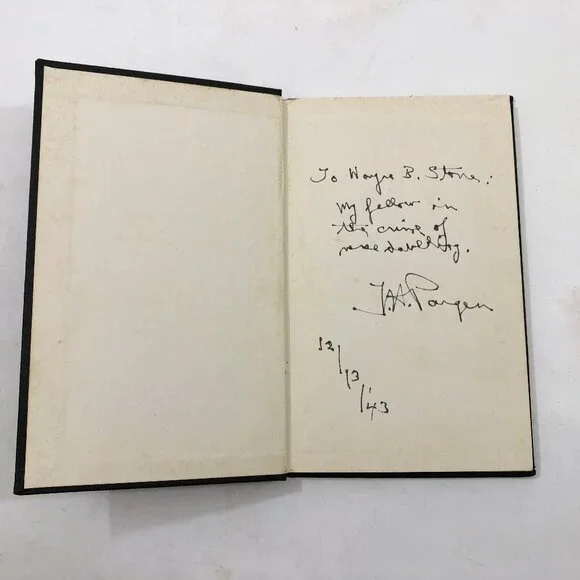 To Wayne B. Stone:
My fellow in
the crime of
verse dabbling.
J.H. Pargen
12/13/'43